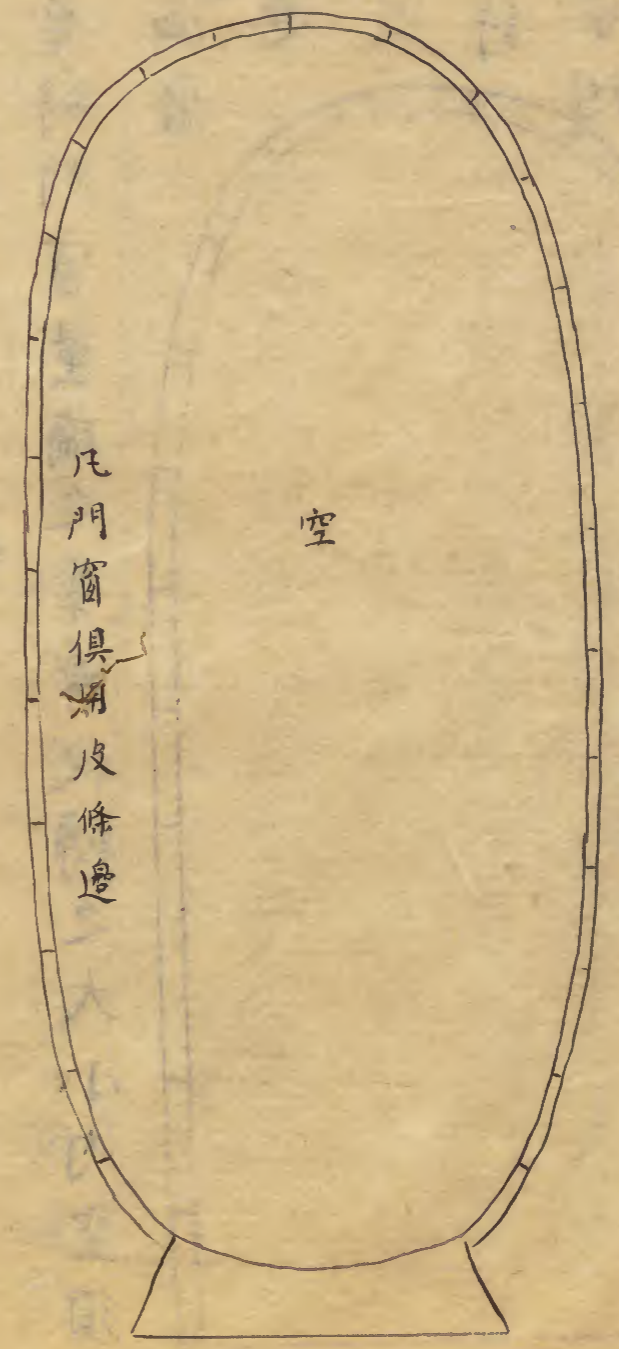 空
凡門窗俱用皮條邊